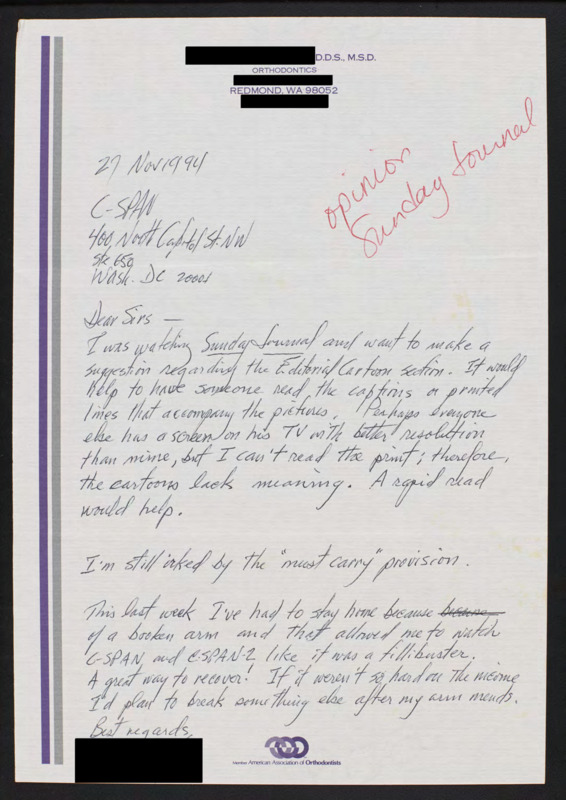 D.D.S., M.S.D.
ORTHODONTICS
REDMOND, WA 98052
opinion
Sunday Journal
27 Nov 1994
C-SPAN
400, North Capitol St. NW
Ste 650
Wash. DC 20001
Dear Sirs —
I was watching Sunday Journal and want to make a
suggestion regarding the Editorial Cartoon section. It would
help to have someone read the captions or printed
lines that accompany the pictures. Perhaps everyone
else has a screen on his TV with better resolution
than mine, but I can't read the print; therefore,
the cartoons lack meaning. A rapid read
would help.
I'm still irked by the "must carry" provision.
This last week I've had to stay home because because
of a broken arm and that allowed me to watch
C-SPAN and C-SPAN-2 like it was a fillibuster.
A great way to recover! If it weren't so hard on the income
I'd plan to break something else after my arm mends.
Best regards,
Member American Association of Orthodontists